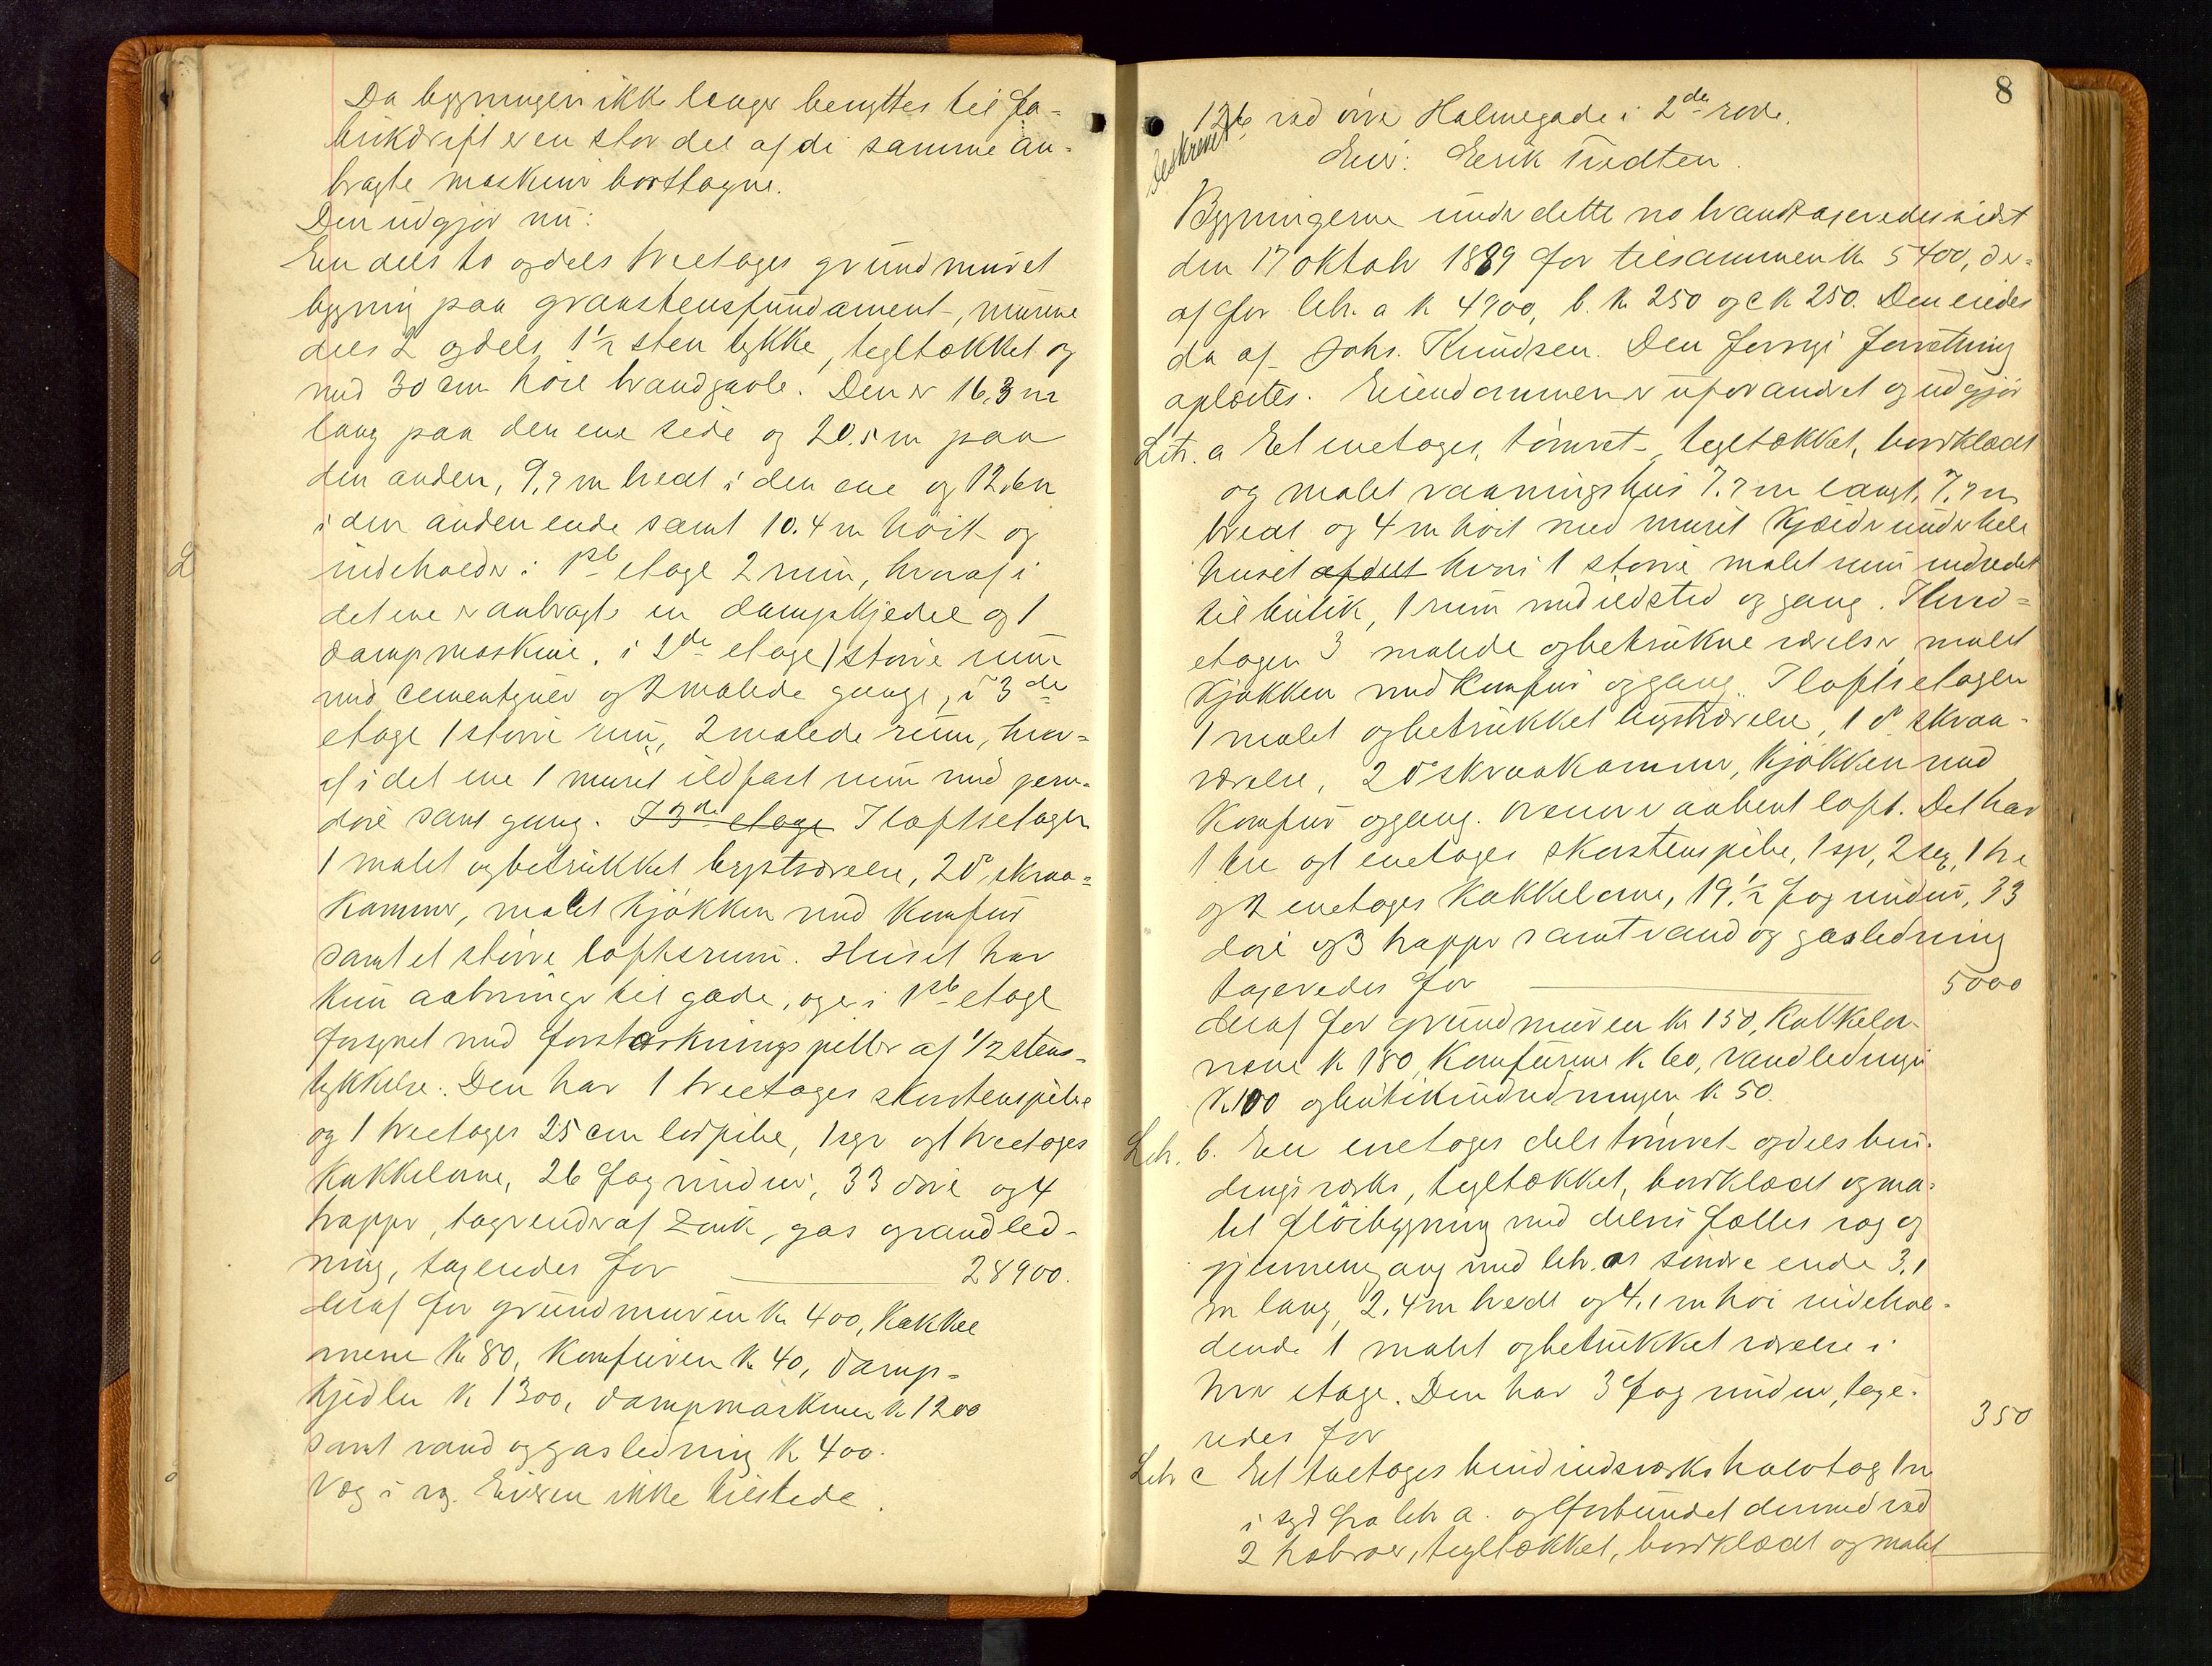 Da bygningen ikke længer benyttes til fa-
brikdrift er en stor del af de i samme an-
bragte maskiner borttagne.
Den udgjør nu:
En dels to og dels treetages grundmuret
bygning paa graastensfundament, murene
dels 2 og dels 1½ sten tykke, tegltækket og
med 30 cm høie brandgavle. Den er 16,3 m
lang paa den ene side og 20.5 m paa
den anden, 9,7 m bred i den ene og 12,6 m
i den anden ende samt 10.4 m høit og
indeholder i 1ste etage 2 rum, hvoraf i
det ene er anbragt en dampkjedel og 1
dampmaskine, i 2de etage 1 større rum
med cementgulv og 2 malede gange, i 3de
etage 1 større rum, 2 malede rum, hvor-
af i det ene 1 muret ildfast rum med jern-
døre samt gang. I 3de etage I loftsetagen
1 malet og betrukket kvistværelse, 2 do skraa-
kammer, malet kjøkken med komfur
samt et større loftsrum. Huset har
kun aabninger til gade, og er i 1ste etage
forsynet med forstærkningspiller af ½ stens
tykkelse. Den har 1 treetages skorstenspibe
og 1 treetages 25 cm lodpibe, 1 sgr og 1 treetages
kakkelovne, 26 fag vinduer, 33 døre og 4
trapper, tagrender af zink, gas og vandled-
ning, taxeredes for 28900.
deraf for grundmuren kr 400, kakkel
ovnene kr 80, komfuren kr 40, damp-
kjedlen kr 1300, dampmaskinen kr 1200
samt vand og gasledning kr 400.
Væg i væg. Eieren ikke tilstede.
8
beskrevet
126 ved øvre Holmegade i 2de rode.
Eier: Eerik Tvedten.
Bygningerne under dette no brandtaxeredes sidst
den 17 oktobr 1889 for tilsammen kr 5400, der-
af for litr. a kr 4900, b. kr 250 og c kr 250. Den eiedes
da af Johs. Knudsen. Den forrige forretning
oplæstes. Eiendommen er uforandret og udgjør
Litr. a Et enetages, tømret, tegltækket, bordklædt
og malet vaaningshus 7.7 m langt, 7.7 m
bredt og 4 m høit med muret kjælder under hele
huset afdelt hvori 1 større malet rum indredet
til butik, 1 rum med ildsted og gang. I hoved-
etagen 3 malede og betrukne værelser, malet
kjøkken med komfur og gang. I loftsetagen
1 malet og betrukket kvistværelse, 1 do skraa-
værelse, 2 do skraakammer, kjøkken med
komfur og gang. Ovenover aabent loft. Det har
1 tre og 1 enetages skorstenspibe, 1 sgr, 2 seg, 1 tre
og 2 enetages kakkelovne, 19 ½ fag vinduer, 33
døre og 3 trapper samt vand og gasledning
taxeredes for 5000
deraf for grundmuren kr 150, kakkelov-
nene kr 180, komfurene kr 60, vandledningen
kr 100 og butikindredningen kr 50.
Litr. b. En enetages dels tømret og dels bin-
dingsværks, tegltækket, bordklædt og ma-
let fløibygning med delvis fælles væg og
gjennemgang med litr. as søndre ende 3,1
m lang, 2,4 m bred og 4,1 m høi indehol-
dende 1 malet og betrukket værelse i
hver etage. Den har 3 fag vinduer, taxe-
redes for 350
Litr c Et toetages bindingsværks halvtag 1 m
i syd fra litr a. og forbundet dermed ved
2 trebroer, tegltækket, bordklædt og malet